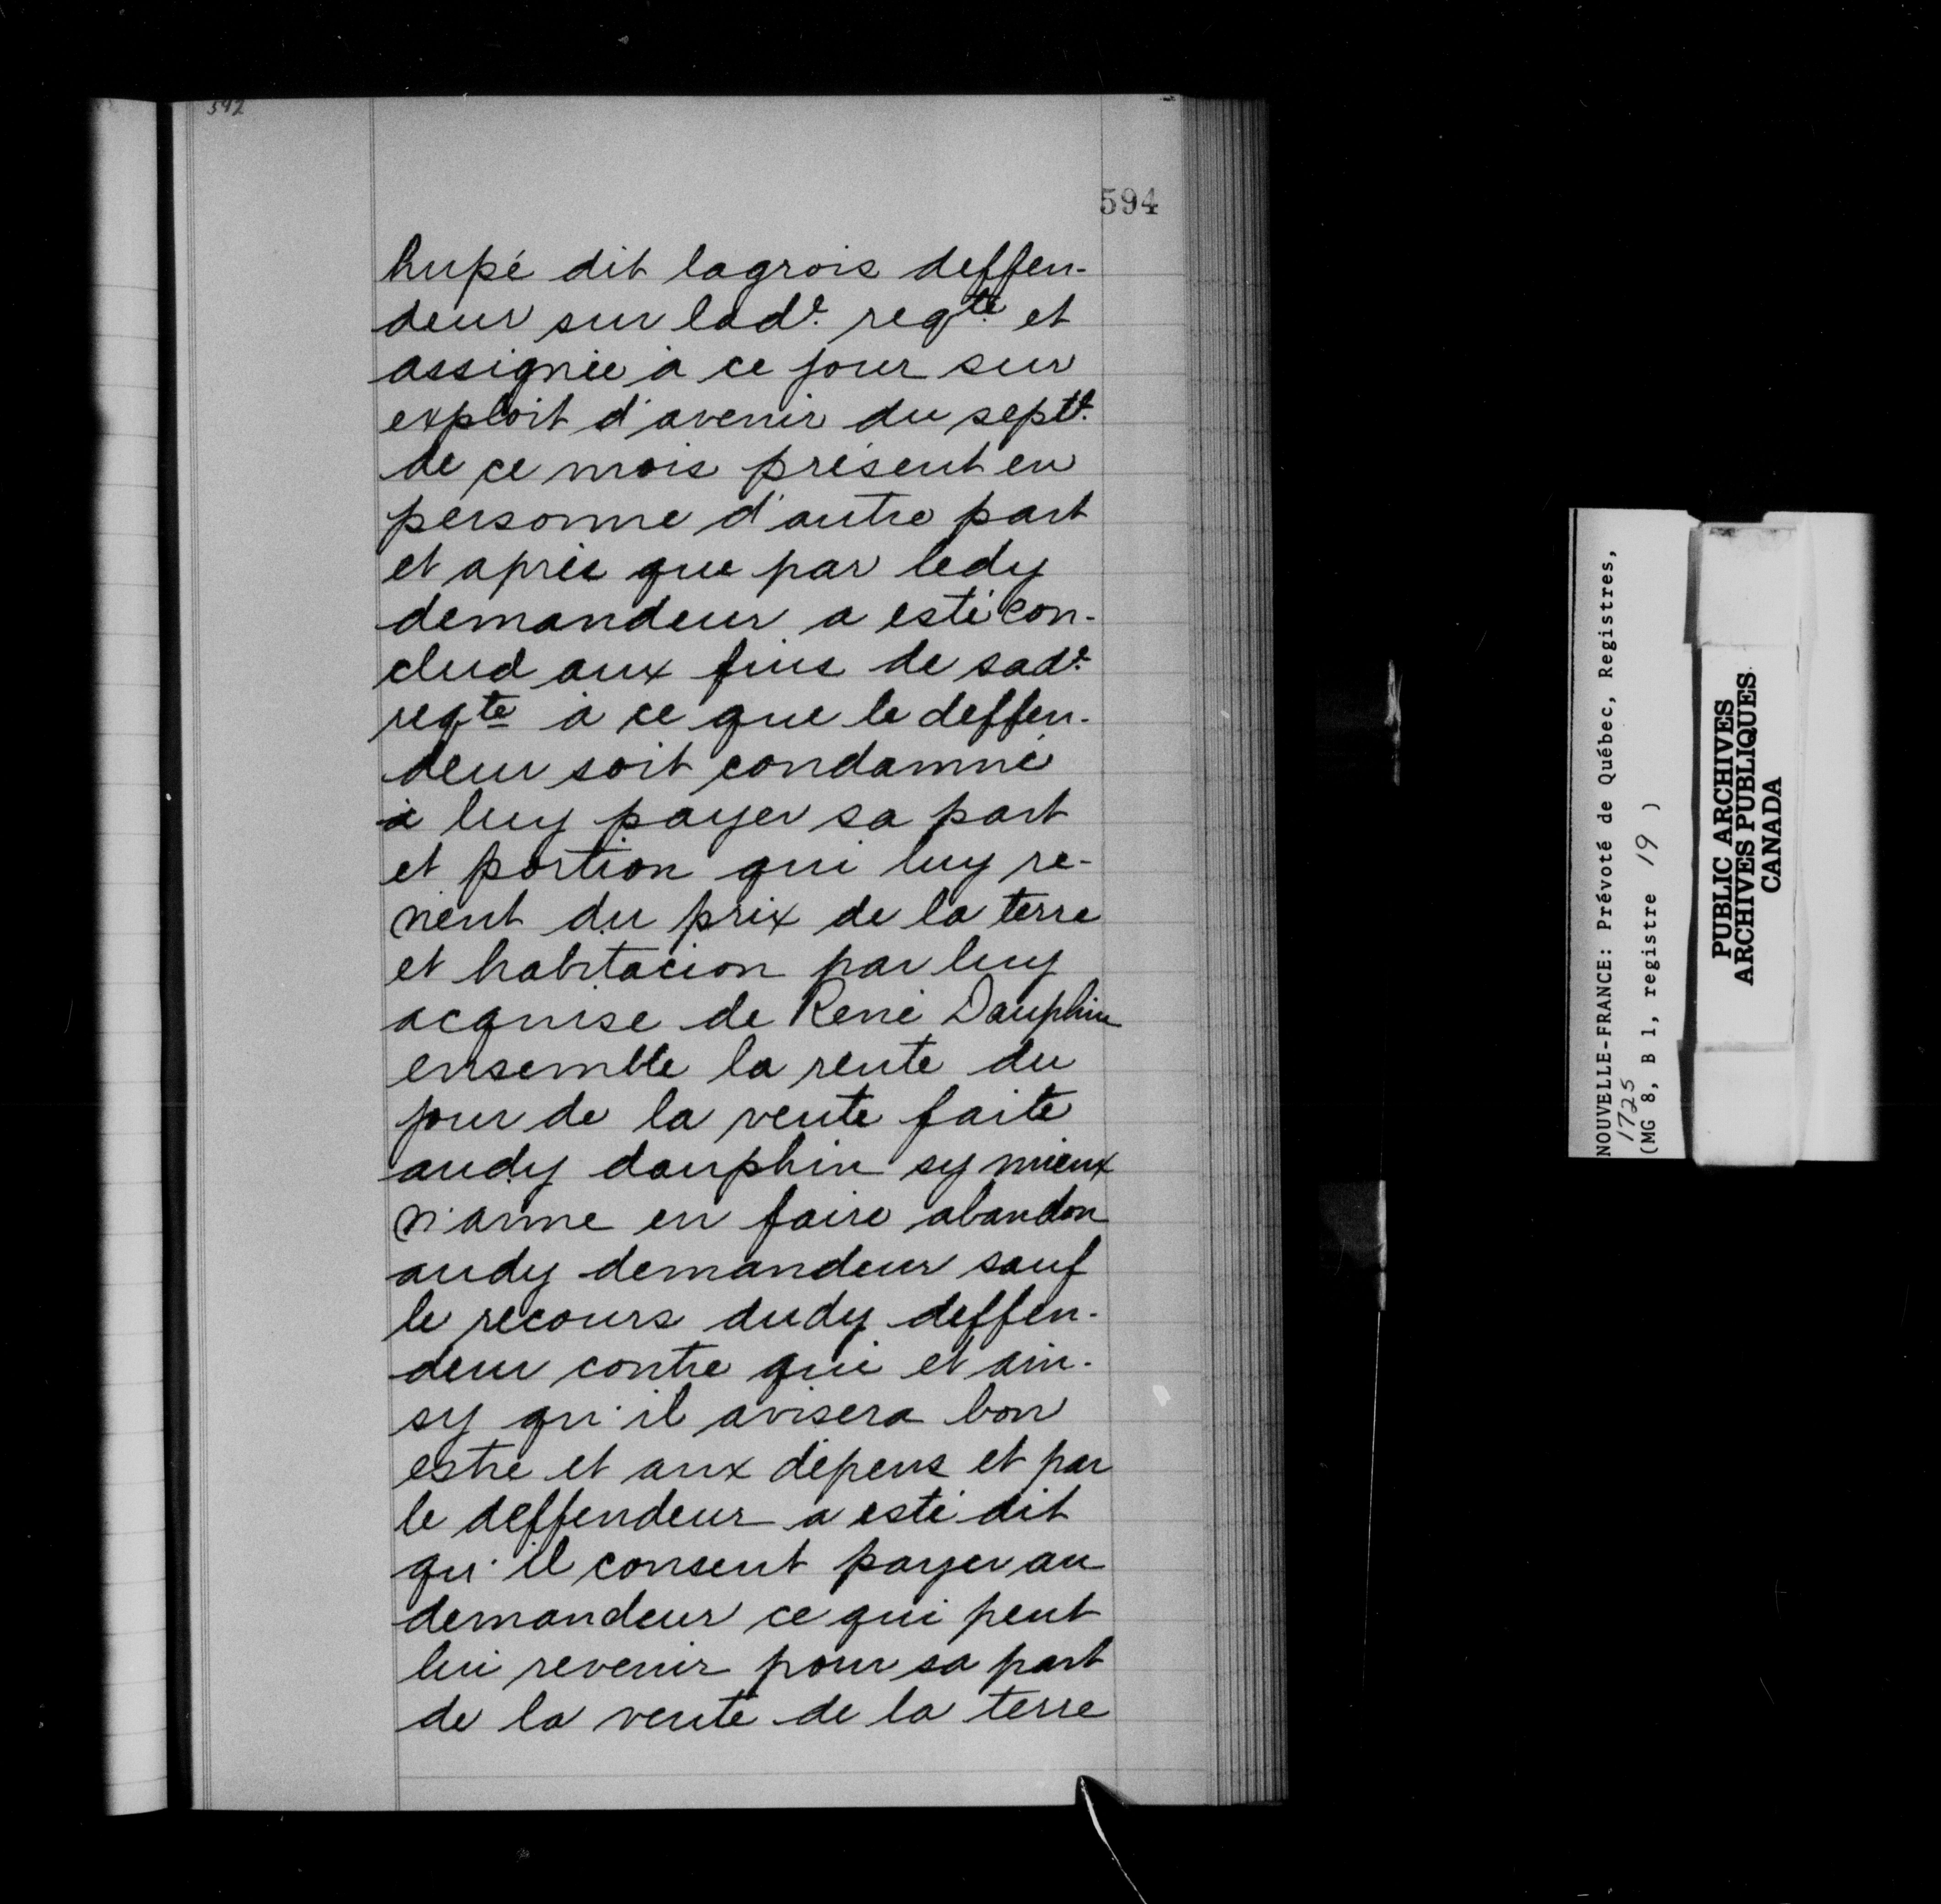 542
594
hupé dit lagrois deffen-
deur sur lade. reqte et
assignée à ce jour sur
exploit d'avenir du septe.
de ce mois présent en
personne d'autre part
et après que par ledy
demandeur a esté con-
clud aux fins de sade.
reqte à ce que le deffen-
deur soit condamné
à luy payer sa part
et portion qui luy re-
vient du prix de la terre
et habitacion par luy
acquise de René Dauphin
ensemble la rente du
jour de la vente faite
audy dauphin sy mieux
n'aime en faire abandon
audy demandeur sauf
le recours dudy deffen-
deur contre qui et ain-
sy qu'il avisera bon
estre et aux dépens et par
le deffendeur a esté dit
qu'il consent payer au
demandeur ce qui peut
lui revenir pour sa part
de la vente de la terre
NOUVELLE-FRANCE: Prévoté de Québec, Registres,
1725
(MG 8, B 1, registre 19 )
PUBLIC ARCHIVES
ARCHIVES PUBLIQUES
CANADA